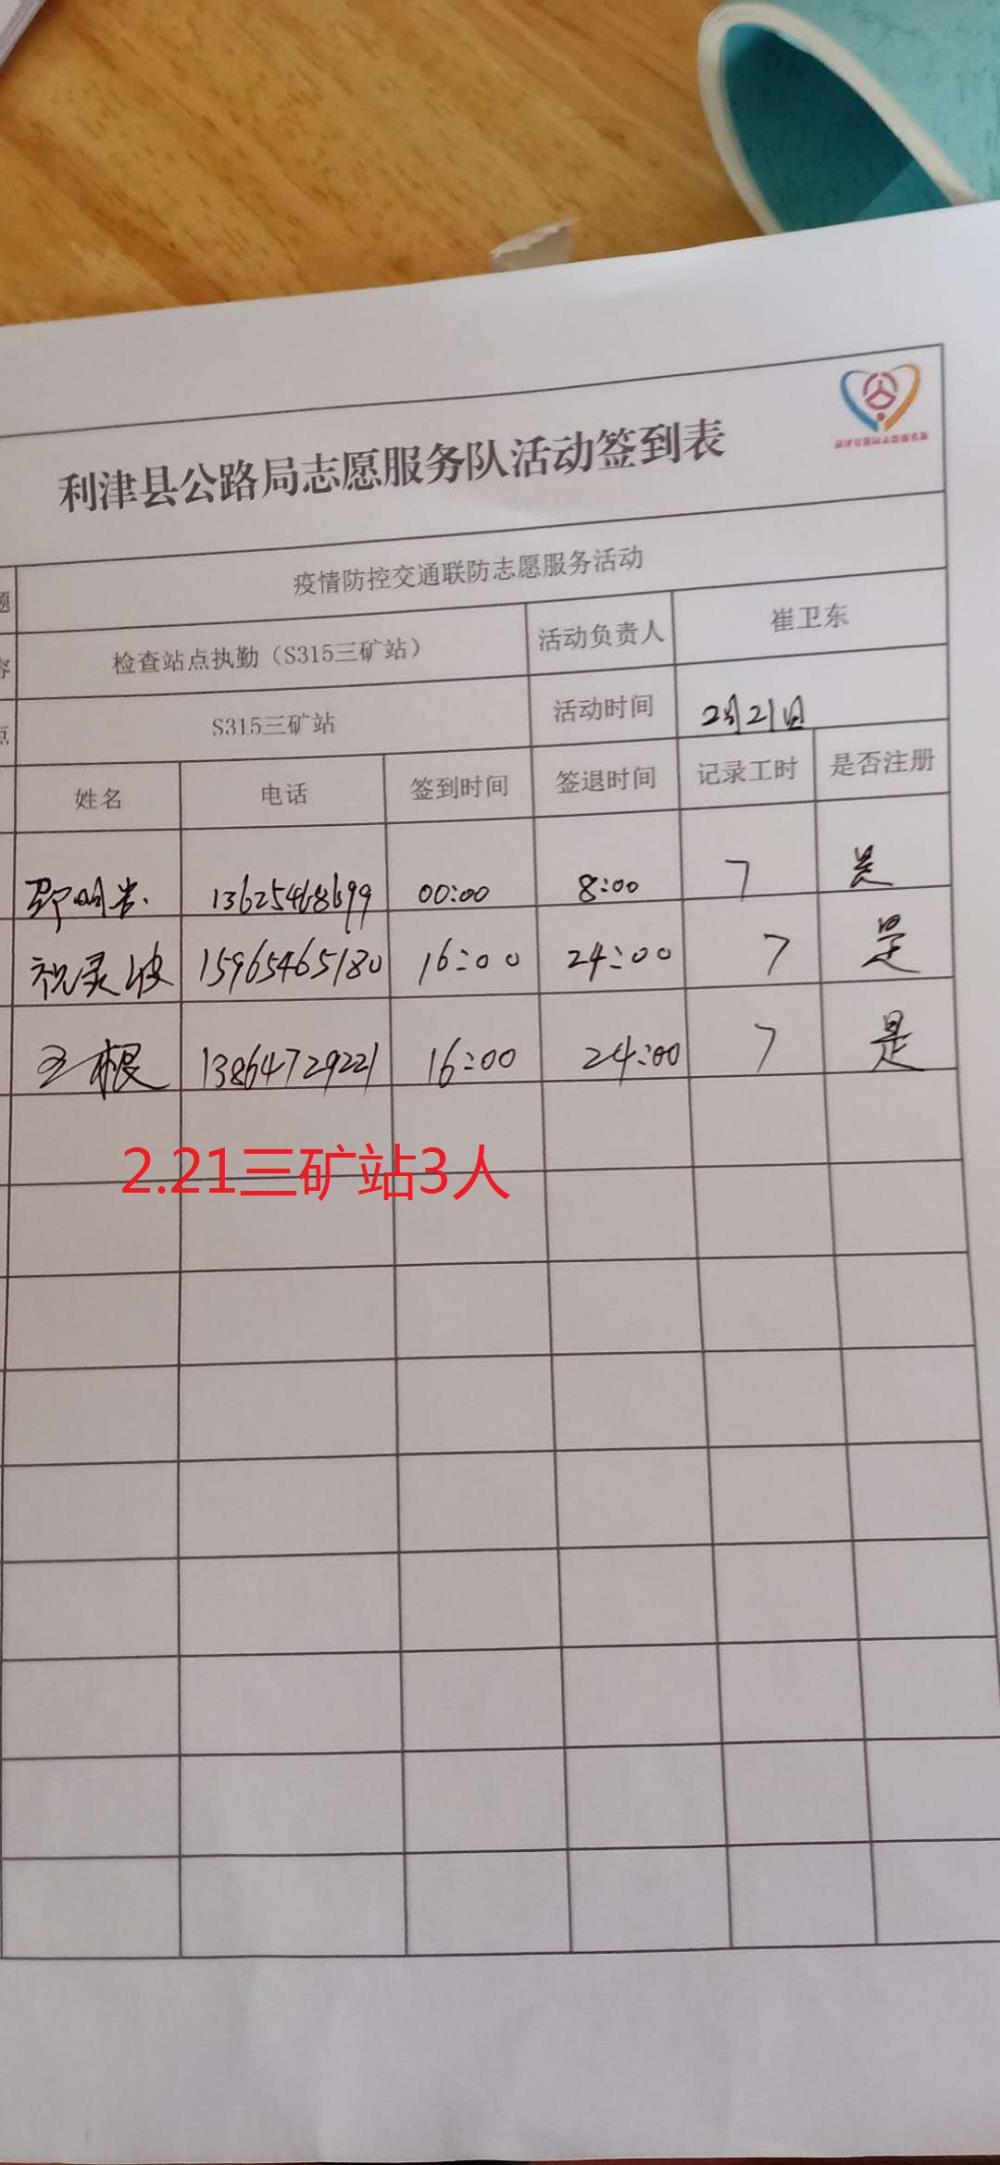 利津县公路局志愿服务队活动签到表
题 疫情防控交通联防志愿服务活动
容 检查站点执勤（S315三矿站） 活动负责人 崔卫东
点 S315三矿站 活动时间 2月21日
姓名 电话 签到时间 签退时间 记录工时 是否注册
13625468699 00:00 8:00 7 是
祝灵波 15965465180 16:00 24:00 7 是
王根 13864729221 16:00 24:00 7 是
2.21三矿站3人